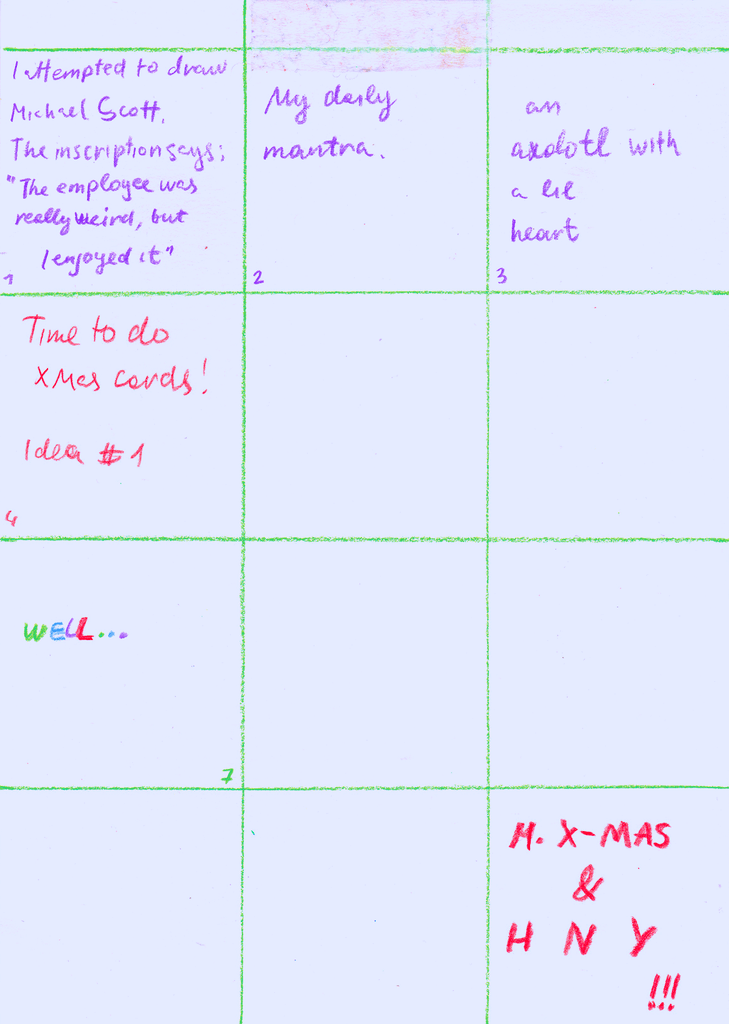 I attempted to draw
Michael Scott.
The inscription says:
"The employee was
really weird, but
I enjoyed it"
1
My daily
mantra.
2
an
axolotl with
a lil
heart
3
Time to do
XMas cards!
Idea #1
4
WELL...
7
M. X-MAS
&
H N Y
!!!